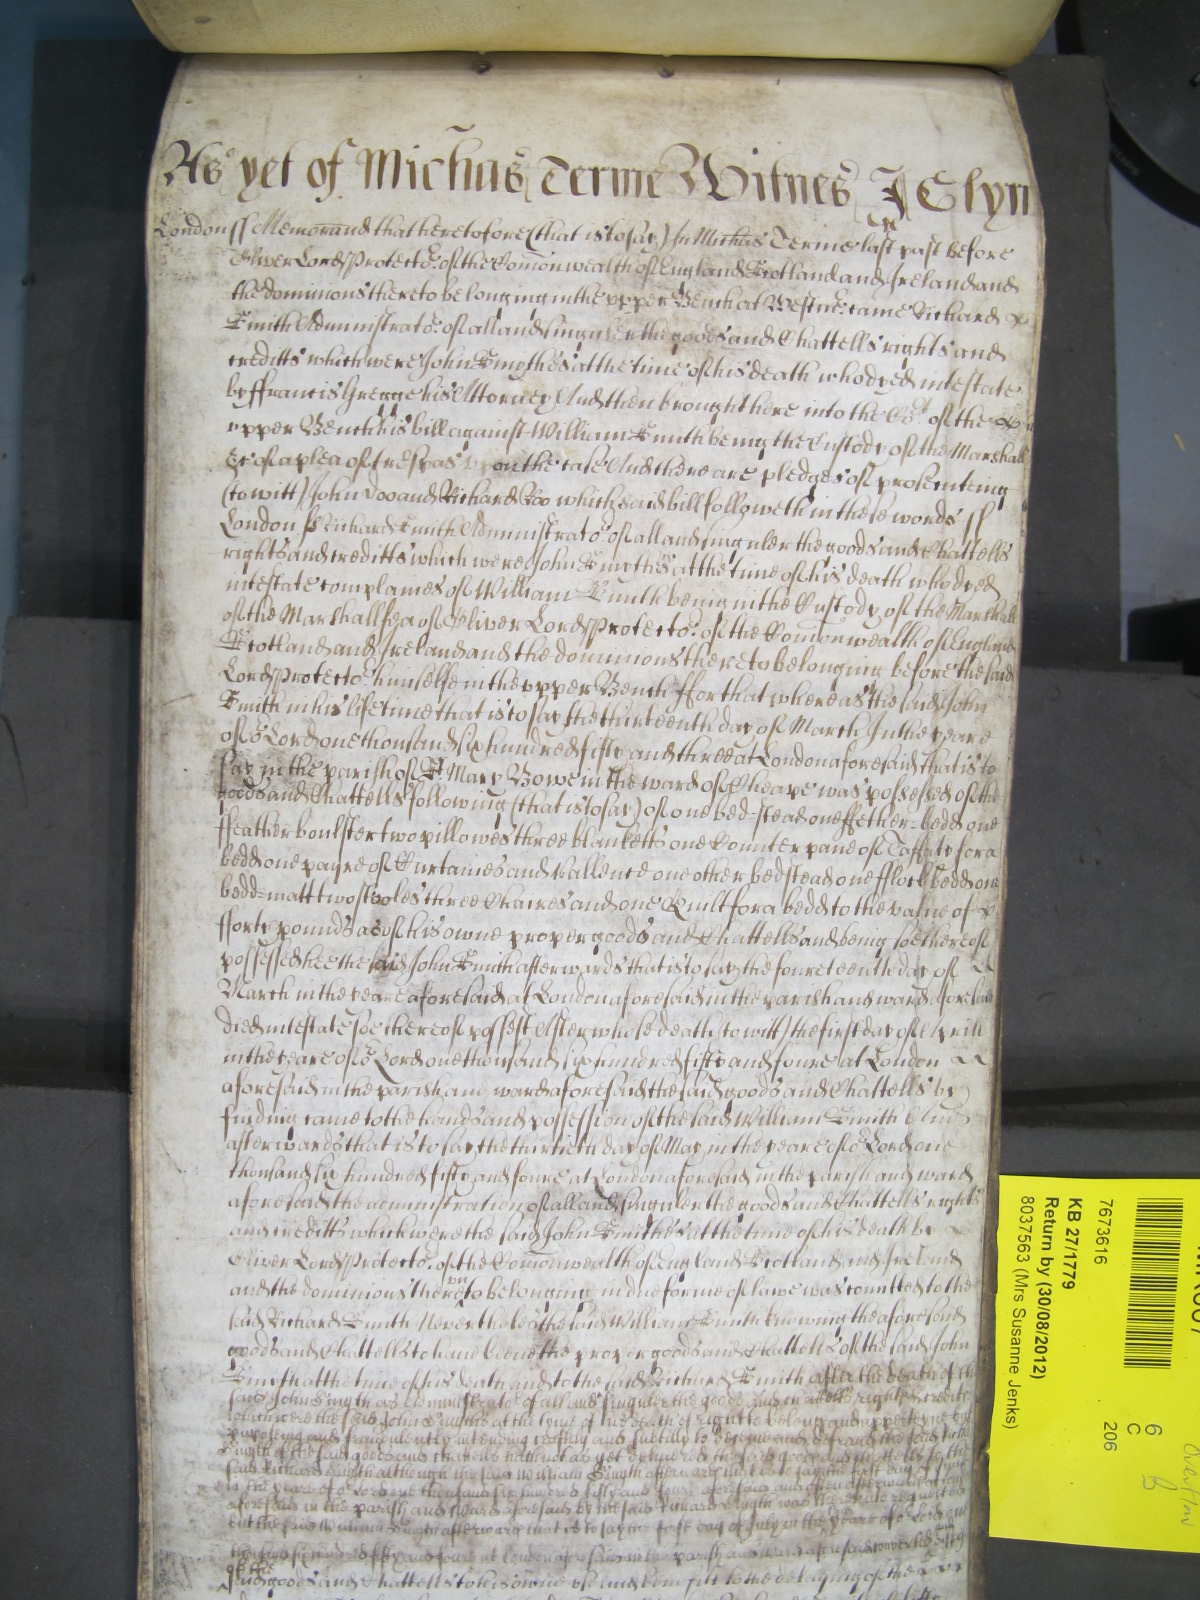 As yet of Michas Terme Witnes J Glyn
London ss Memorand that heretofore (that is to say) In Michas Terme last past before
Oliver Lord Protector of the Comonwealth of England Scotland and Ireland and
the dominions thereto belonging in the upper Bench at Westmr came Richard
Smith Administrator of all and singuler the goods and Chattells rights and
creditts which were John Smythes at the time of his death who dyed intestate
by ffrancis Gregge his Attorney And then brought here into the Cot of the
upper Bench his bill against William Smith being the Custody of the Marshall
&c of a plea of trespas upon the case And there are pledges of prosecuteing
(to witt) John Doo and Richard Roo which said bill followeth in these words ss
London ss Richard Smith Administrator of all and singuler the goods and Chattells
rights and creditts which were John Smythes at the time of his death who dyed
intestate complaines of William Smith being in the Custody of the Marshall
of the Marshallsea of Oliver Lord Protector of the Comonwealth of England
Scotland and Ireland and the dominions thereto belonging before the said
Lord Protector himselfe in the upper Bench ffor that whereas the said John
Smith in his life time that is to say the thirteenth day of March In the yeare
of or Lord one thousand six hundred fifty and three at London aforesaid that is to
say in the parish of St Mary Bowe in the ward of Cheape was possessed of the
goods and Chattells following (that is to say) of one bed-stead one ffether-bedd one
ffeather boulster two pillowes three blanketts one Counterpane of Taffaty for a
bedd one payre of Curtaines and Vallence one other bedstead one fflock bedd one
bedd-matt two stooles three Chaires and one Quilt for a bedd to the value of
fforty pounds as of his owne proper goods and Chattells and being soe thereof
possessed hee the said John Smith afterwards that is to say the foureteenth day of
March in the yeare aforesaid at London aforesaid in the parish and ward aforesaid
died intestate soe thereof possest After whose death (to witt) the first day of Aprill
in the yeare of or Lord one thousand six hundred fifty and foure at London
aforesaid in the parish and ward aforesaid the said goods and Chattells by
finding came to the hands and possession of the said William Smith And
afterwards that is to say the thirtieth day of May in the yeare of or Lord one
thousand six hundred fifty and foure at London aforesaid in the parish and ward
aforesaid the administration of all and singuler the goods and Chattells rights
and creditts which were the said John Smithes at the time of his death by
Oliver Lord Protector of the Comonwealth of England Scotland and Ireland
and the dominions thereto belonging in due forme of lawe was comitted to the
said Richard Smith Neverthelesse the said William Smith knowing the aforesaid
goods and Chattells to have beene the proper goods and Chattells of the said John
Smith at the time of his death and to the said Richard Smith after the death of the
said John Smyth as Administrator of all and singuler the goods and Chattells rights & creditts
which were the said John Smythes at the tyme of his death of right to belong and apperteyne but
purposing and fraudulently intending craftily and subtilly to deceive and defraud the said Richard
Smyth of the said goods and chattells hath not as yet delivered the said goods and chattells to the
said Richard Smyth although the said William Smyth afterwards that is to say the first day of
in the yeare of or Lord one thousand six hundred fifty and foure aforesaid and often afterwards att London
aforesaid in the parish and ward aforesaid by the said Richard Smyth was thereunto requested
but the said William Smyth afterwards that is to say the first day of July in the yeare of or Lord one
thousand six hundred fifty and foure at London aforesaid in the parish and ward aforesaid converted
of the
said goods and Chattells to his owne use and benefitt to the delaying of the
7673616
KB 27/1779
Return by (30/08/2012)
8037563 (Mrs Susanne Jenks)
6
C
206